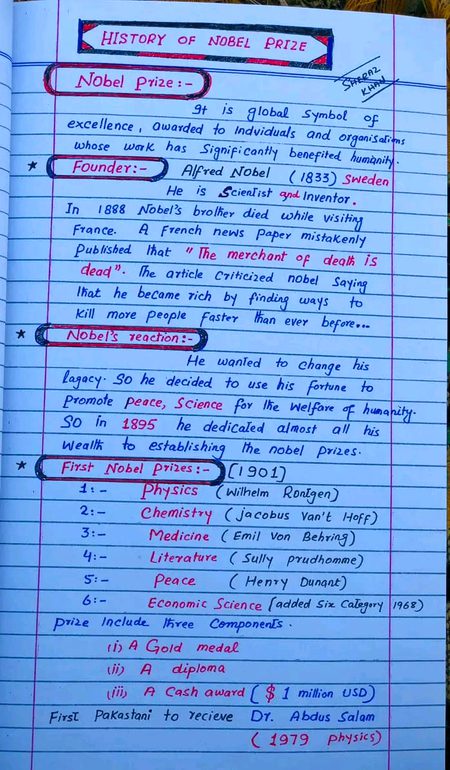 HISTORY OF NOBEL PRIZE
SHERAZ
KHAN
Nobel Prize:-
It is global symbol of
excellence, awarded to Individuals and organisations
whose work has significantly benefited humanity.
★ Founder:- Alfred Nobel (1833) Sweden
He is Scientist and Inventor.
In 1888 Nobel's brother died while visiting
France. A French news paper mistakenly
Published that "The merchant of death is
dead". The article criticized nobel saying
that he became rich by finding ways to
kill more people faster than ever before...
★ Nobel's reaction:-
He wanted to change his
lagacy. So he decided to use his fortune to
promote peace, Science for the welfare of humanity.
SO in 1895 he dedicated almost all his
wealth to establishing the nobel prizes.
★ First Nobel prizes:- [1901]
1:- Physics (Wilhelm Rontgen)
2:- Chemistry (jacobus Van't Hoff)
3:- Medicine (Emil Von Behring)
4:- Literature (Sully prudhomme)
5:- Peace (Henry Dunant)
6:- Economic Science [added Six Category 1968)
prize Include three Components.
(i) A Gold medal
(ii) A diploma
(iii) A Cash award ($ 1 million USD)
First Pakastani to recieve Dr. Abdus Salam
(1979 physics)